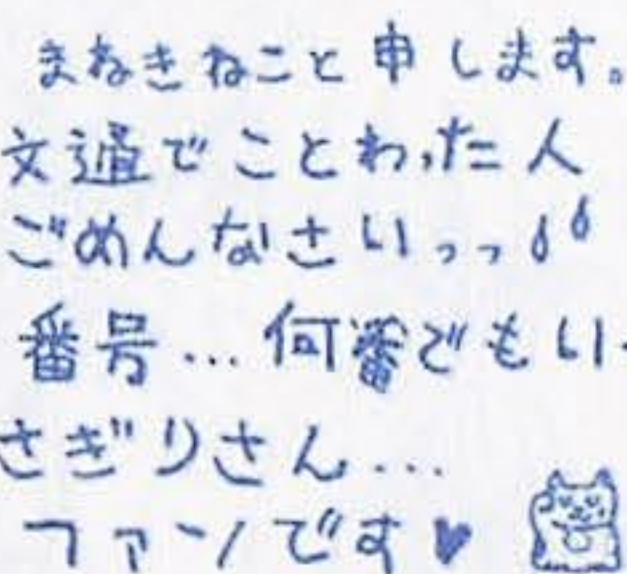 まねきねこと申します。
文通でことわった人
ごめんなさいっっ
番号…何番でもい
さぎりさん…
ファンです♥